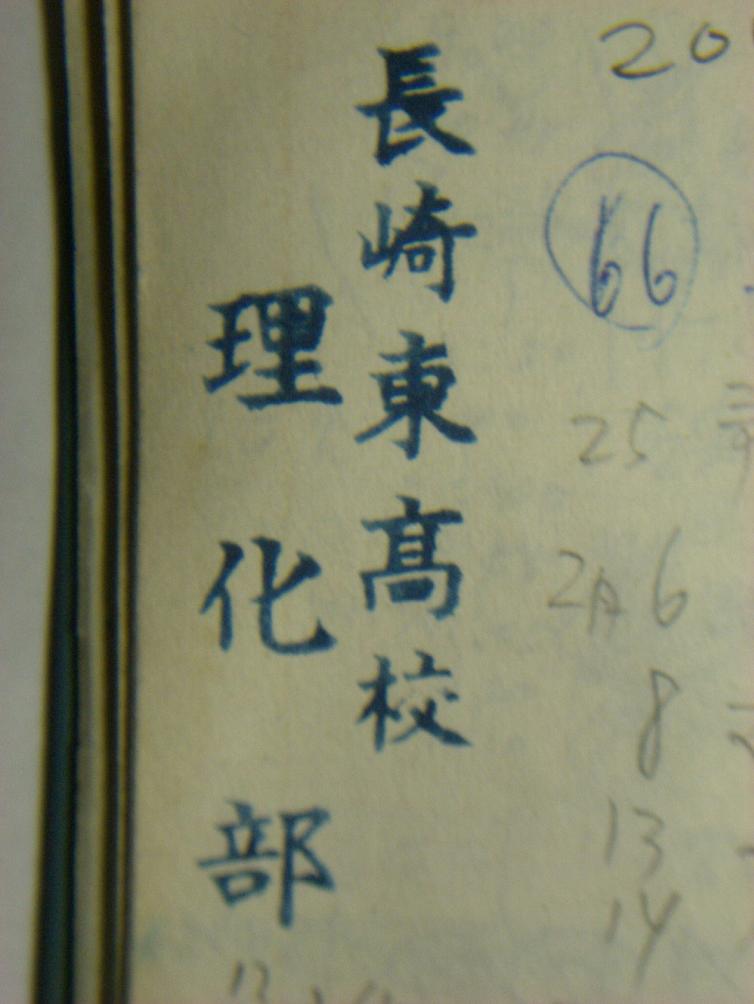 長崎東髙校
理化部
20
66
25
2A 6
8
13
14